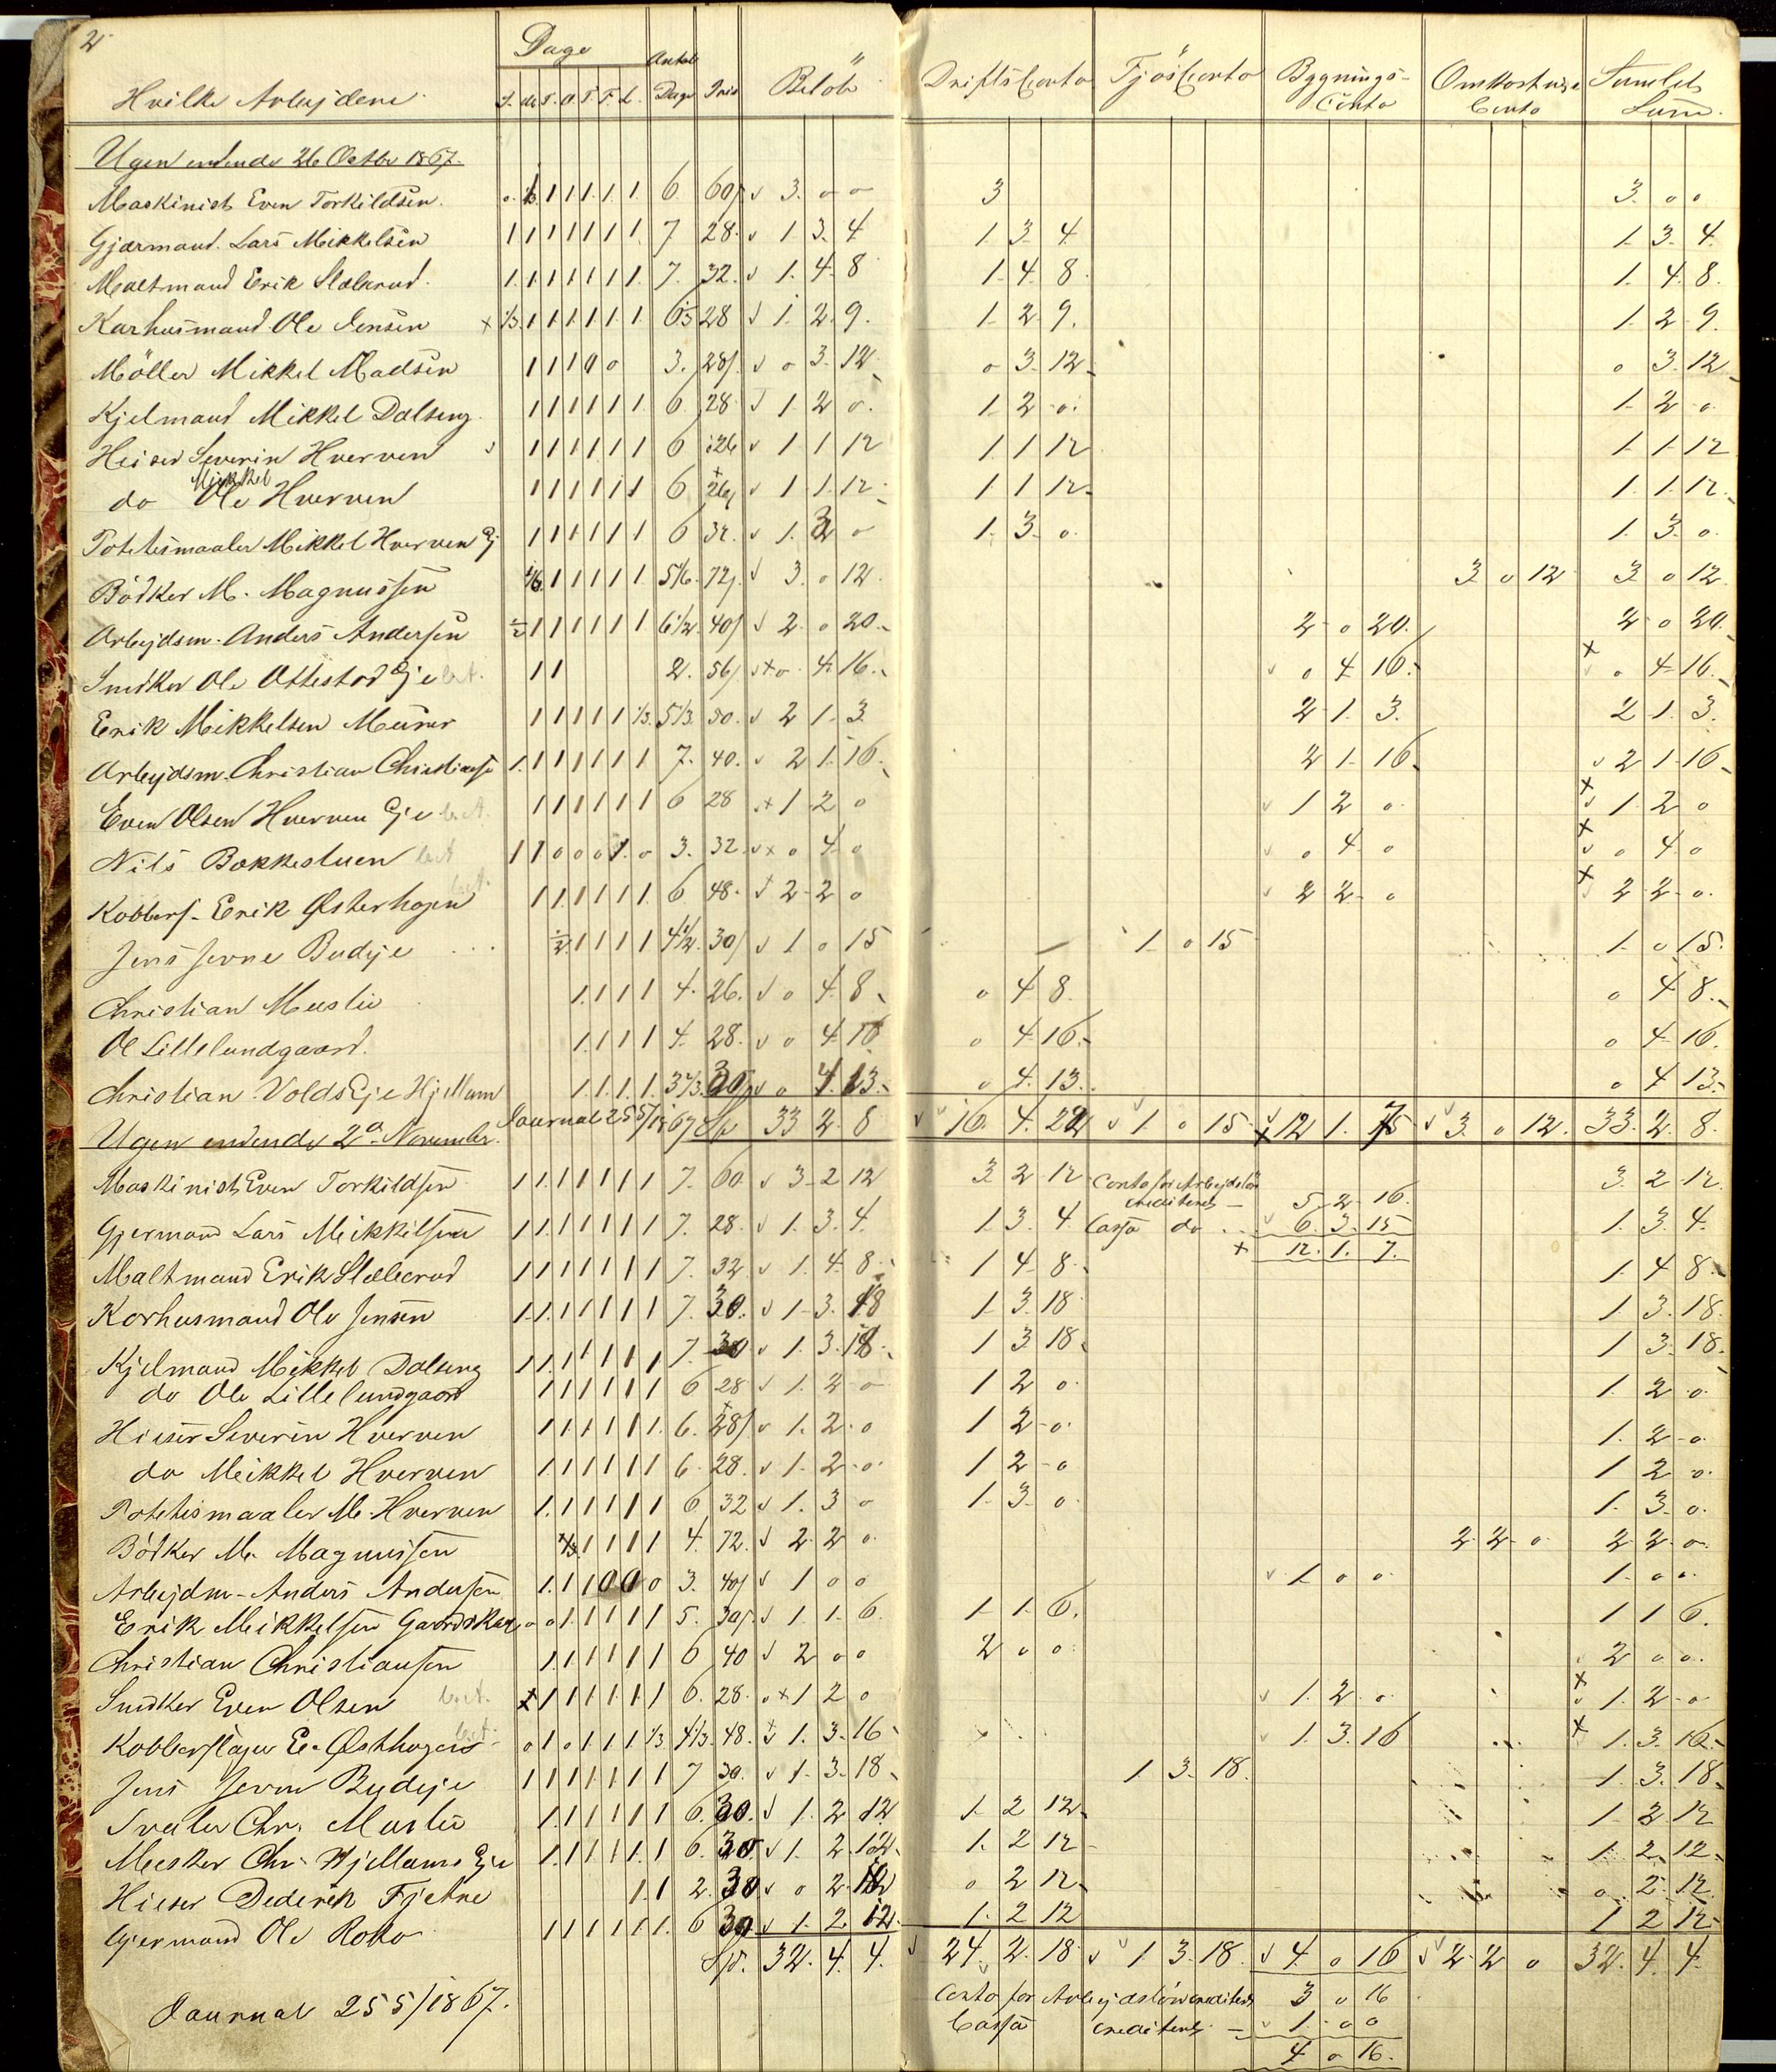 2
Hvilke Arbejdere Dage Antal Dage Pris Beløb Driftsconto Fjøsconto Bygnings-Conto Omkostnings Conto Samlet Sum.
S. M. T. O. T. F. L.
Ugen endende 26 Octbr 1867.
Maskinist Even Torkildsen. 0. 1 1 1. 1. 1. 6 60 3. 0 0 3 3. 0 0
Gjærmand. Lars Mikkelsen 1 1 1 1 1 1 1. 7 28. 1 3. 4 1. 3 4 1. 3. 4.
Maltmand Erik Slabrud. 1. 1. 1 1 1 1 1. 7. 32. 1. 4. 8 1. 4. 8. 1. 4. 8.
Karhusmand Ole Jensen + 1/3. 1 1. 1. 1. 1. 1. 6 1/3 28 1. 2. 9. 1. 2 9. 1. 2. 9.
Møller Mikkel Madsen 1 1 1 0 0 3. 28 0 3. 12. 0 3. 12. 0 3. 12
Kjelmand Mikkel Dalseng. 1 1 1 1 1 1. 6. 28 1. 2 0. 1. 2. 0. 1. 2. 0.
Heiser Severin Hverven 1 1 1 1 1 1 6 26 1 1 12 1. 1. 12 1. 1. 12
do Ole Mikkel Hverven 1 1 1 1 1 1 6 26 1 1. 12. 1 1 12. 1. 1. 12.
Potetesmaaler Mikkel Hverven Ej 1 1 1 1 1 1 6 32. 1. 3 0 1. 3. 0. 1. 3. 0.
Bødker M. Magnussen 1/6. 1 1 1 1 1. 5 1/6. 72. 3. 0 12. 3 0 12. 3. 0 12.
Arbejdsm. Anders Andersen 1/2 1 1 1 1 1 1 6 1/2. 40 2. 0 20. 2. 0 20. 2. 0 20.
Snedker Ole Ottestad Eje bet. 1 1 2. 56 + 0. 4. 16. 0 4 16. + 0. 4. 16.
Erik Mikkelsen Murer 1 1 1 1 1 1/3. 5 1/3. 50. 2 1. 3. 2. 1. 3. 2 1. 3.
Arbejdsm. Christian Christianse 1. 1 1 1 1 1 1 7. 40. 2 1. 16. 2 1. 16. 2 1. 16.
Even Olsen Hverven Eje bet. 1 1 1 1 1 1 6 28 + 1 2 0 1 2 0. + 1. 2 0
Nils Bakkestuen bet 1 1 0 0 0 1. 0 3. 32. + 0 4. 0 0 4. 0 + 0 4. 0
Kobbersl. Erik Østerhagen bet. 1 1. 1 1 1 1. 6 48. 2. 2 0 2 2. 0 + 2 2. 0.
Jens Jevne Budeje 1/2. 1 1 1 1 4 1/2. 30 1 0 15 1. 0 15 1. 0 15.
Christian Muslie 1. 1 1 1 4. 26. 0 4. 8. 0 4 8. 0 4 8.
Ol Lillelundgaard. 1. 1. 1 1 4. 28. 0 4. 16 0 4. 16. 0 4. 16.
Christian Volds Eje Hjellum 1. 1. 1. 1. 3 2/3. 30 0 4. 13. 0 4. 13. 0 4 13.
Ugen endende 2d November. Journal 255/1867 Sp 33 2. 8 16. 4. 22 1 0 15 + 12 1. 7 3. 0 12. 33. 2. 8.
Maskinist Even Torkildsen 1 1. 1. 1 1 1 1 7. 60. 3. 2 12 3. 2 12 Conto for Arbejdsløn crediteres — 5. 2. 16. 3. 2. 12.
Gjermand Lars Mikkelsen 1 1. 1 1 1 1 1 7. 28. 1. 3. 4. 1. 3. 4 Cassa do 6. 3. 15 1. 3. 4.
+ 12. 1. 7.
Maltmand Erik Slabrud 1 1 1 1 1 1 1 7. 32 1. 4. 8. 1 4 8. 1. 4 8.
Karhusmand Ole Jensen 1. 1. 1 1 1 1 1 7. 30. 1. 3. 18 1. 3. 18. 1. 3. 18.
Kjelmand Mikkel Dalseng 1 1. 1 1 1 1 1 7. 30 1. 3. 18. 1 3. 18. 1 3. 18.
do Ole Lillelundgaard 1 1 1 1 1 1 6 28 1. 2 0 1 2 0. 1. 2 0.
Hieser Severin Hverven 1 1. 1. 1 1 1. 6. 28 1. 2. 0 1 2. 0. 1. 2. 0.
do Mikkel Hverven 1. 1 1 1 1 1 6. 28. 1. 2. 0. 1 2. 0 1 2 0.
Potetismaaler M. Hverven 1. 1 1 1 1 1 6 32 1. 3 0 1. 3. 0. 1. 3. 0.
Bødker M. Magnussen 1 1 1 1 4. 72. 2. 2 0. 2. 2. 0. 2 2. 0.
Arbejdm. Anders Andersen 1. 1 1 0 0 0 3. 40 1 0 0 1. 0 0. 1. 0 0.
Erik Mikkelsen Gaardskar 0 0 1 1 1 1 1 5. 30. 1 1. 6. 1. 1. 6. 1 1 6.
Christian Christiansen 1. 1. 1 1 1 1 6 40 2 0 0 2 0 0. 2 0 0.
Snedker Even Olsen bet. 1 1 1. 1. 1. 1 6. 28. + 1 2 0 1. 2. 0. + 1. 2. 0
Kobberslager E. Østhagen bet. 0 1 0 1. 1 1 1/3 4 1/3. 48. 1. 3. 16 1. 3. 16 + 1. 3. 16.
Jens Jevne Budeje 1 1 1 1. 1. 1 1 7 30. 1. 3. 18. 1. 3. 18. 1. 3. 18.
Chr. Muslie 1. 1. 1 1 1 1 6. 30. 1. 2 12 1. 2 12. 1 2. 12
Mesker Chr. Hjellums Eje 1. 1. 1 1 1. 1 6. 30. 1. 2. 12. 1. 2 12. 1 2. 12.
Hieser Dederik Fjetre 1. 1 2. 30 0 2. 12 0 2 12. 0 2. 12.
Gjermand Ole Roko 1 1 1 1 1 1. 6 30 1. 2. 12. 1. 2 12 1 2 12.
Spd. 32. 4. 4. 24. 2. 18. 1 3. 18. 4. 0 16 2. 2 0 32. 4. 4.
Journal 255/1867. Conto for Arbejdsløn crediteres 3 0 16
Cassa crediteres — 1. 0 0
4 0 16.